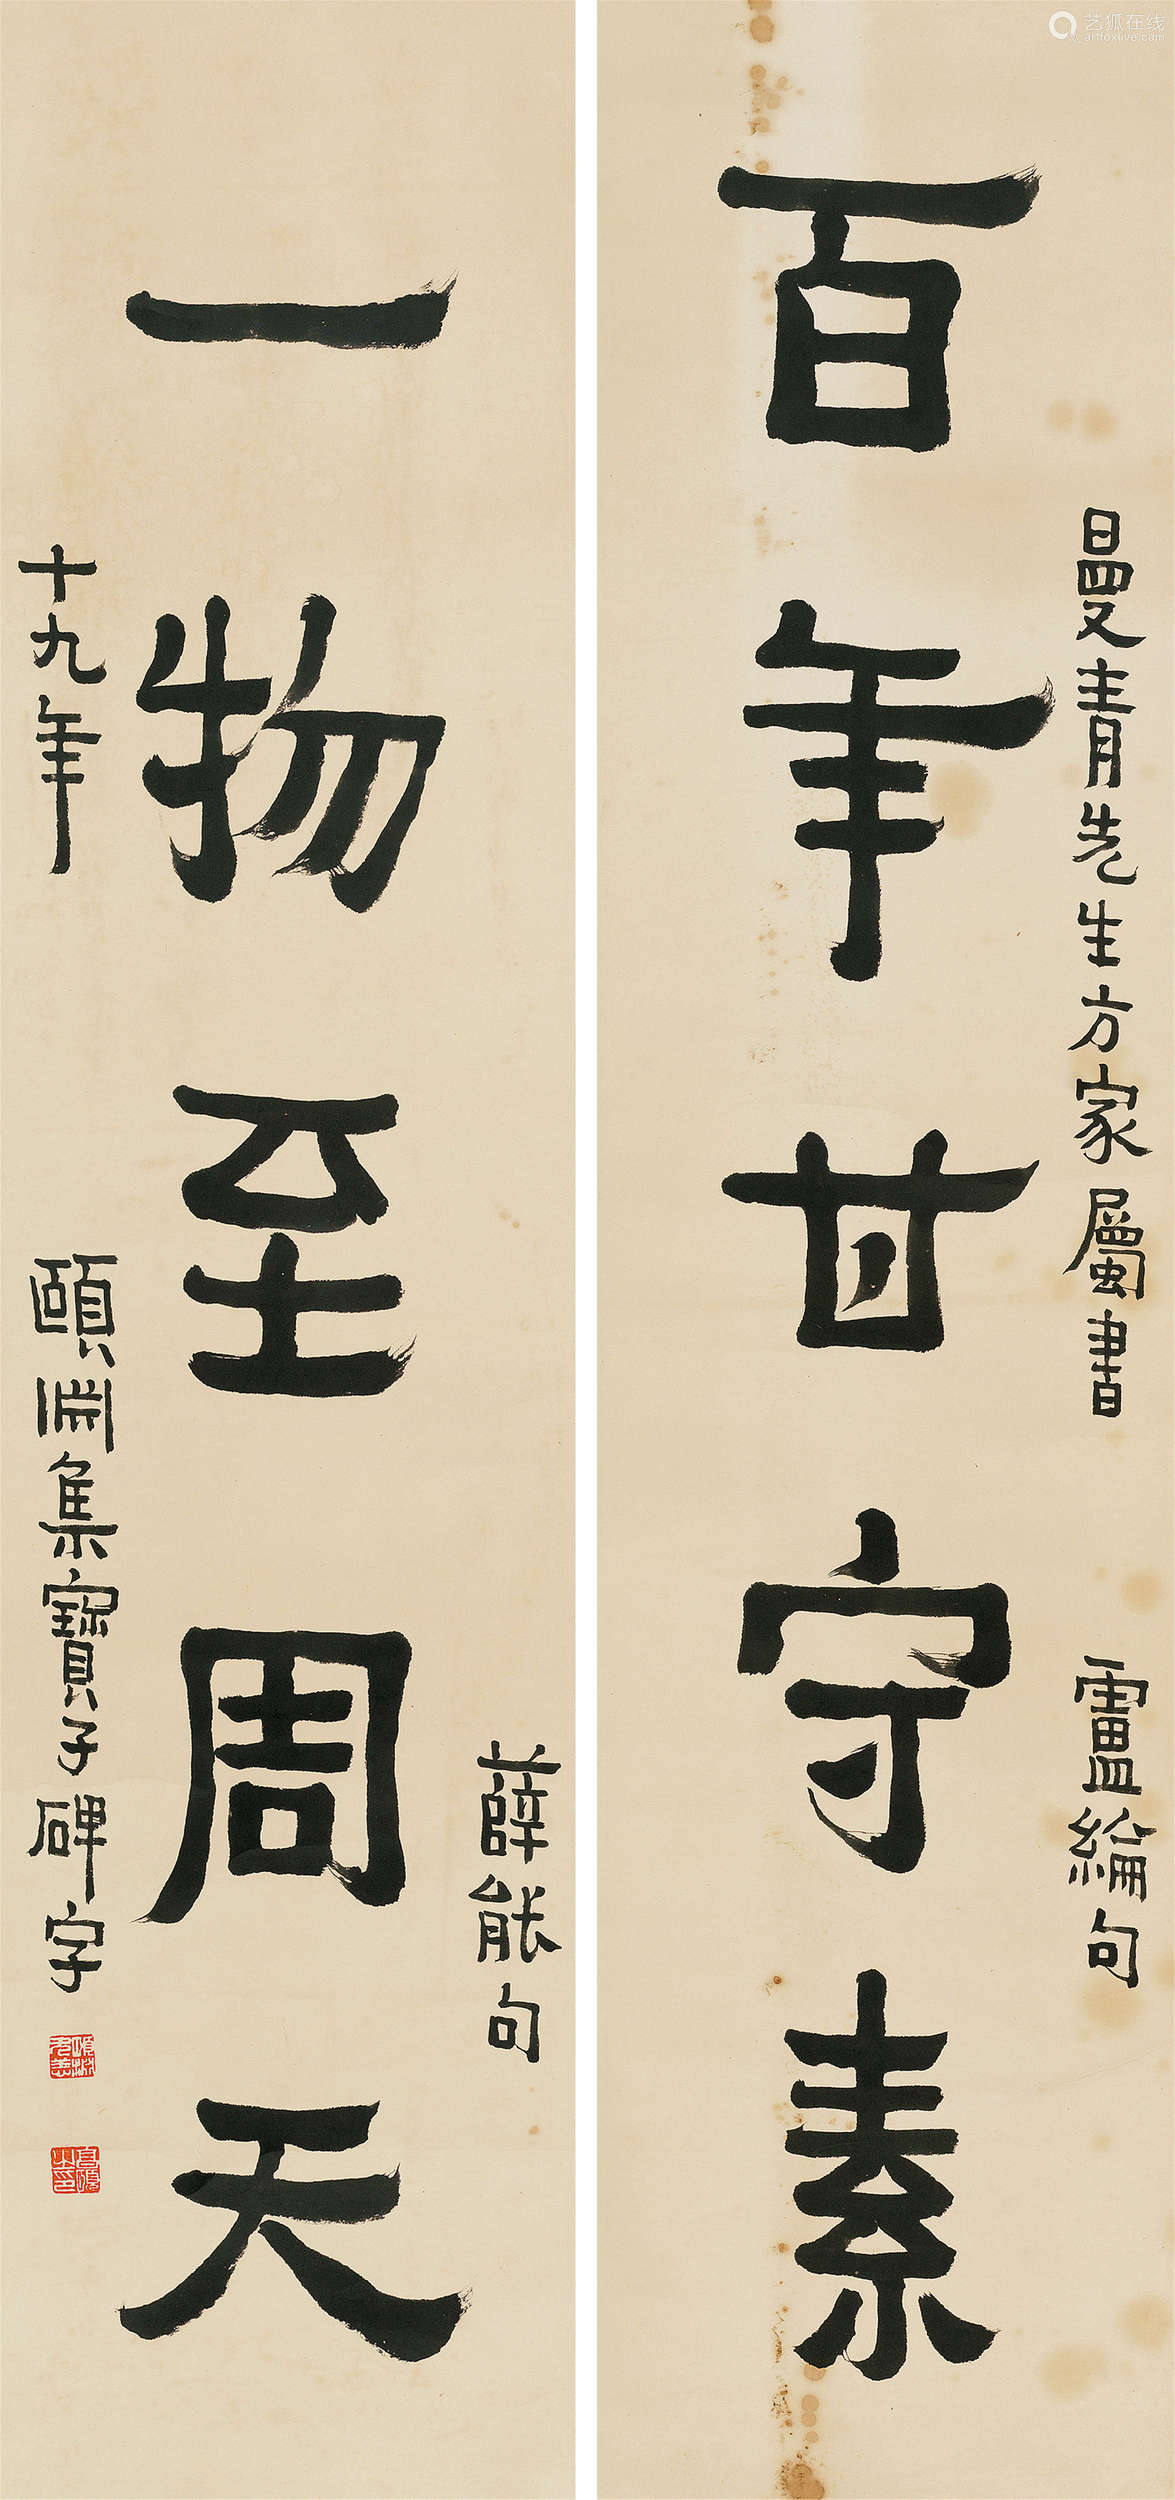 百年甘守素
曼青先生方家屬書
盧綸句
一物至周天
薛能句
十九年
頤淵集寶子碑字
艺狐在线
artfoxlive.com